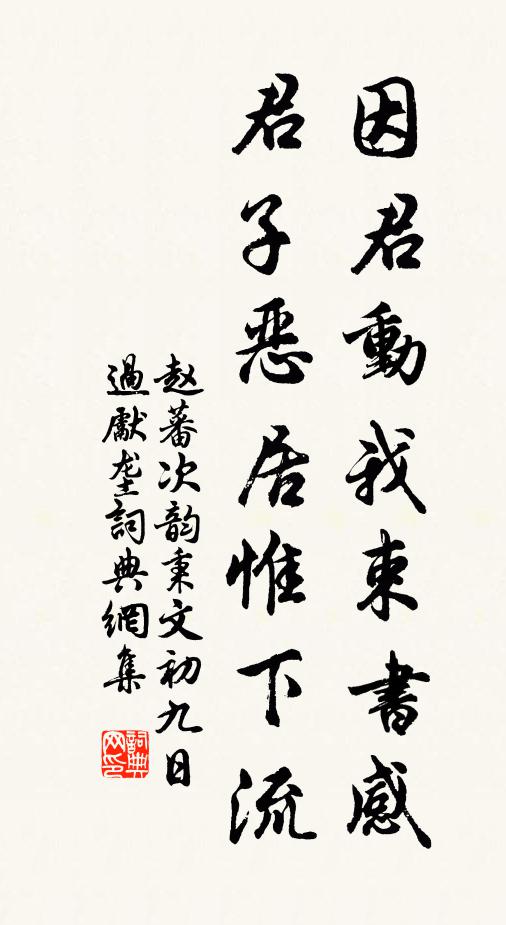 因君動我束書感
君子惡居惟下流
赵蕃次韵秉文初九日
過獻垄詞典網集
詞典網印